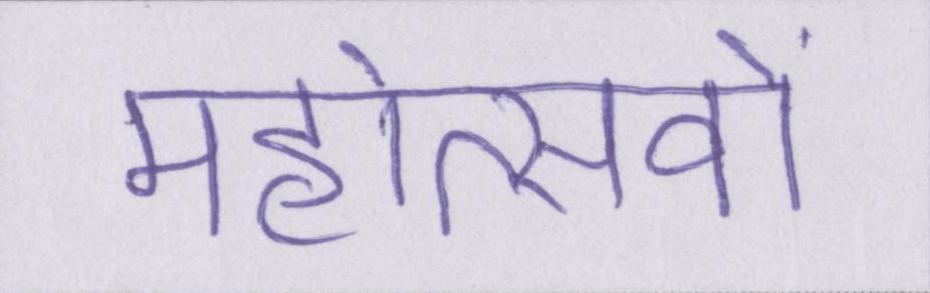 महोत्सवों